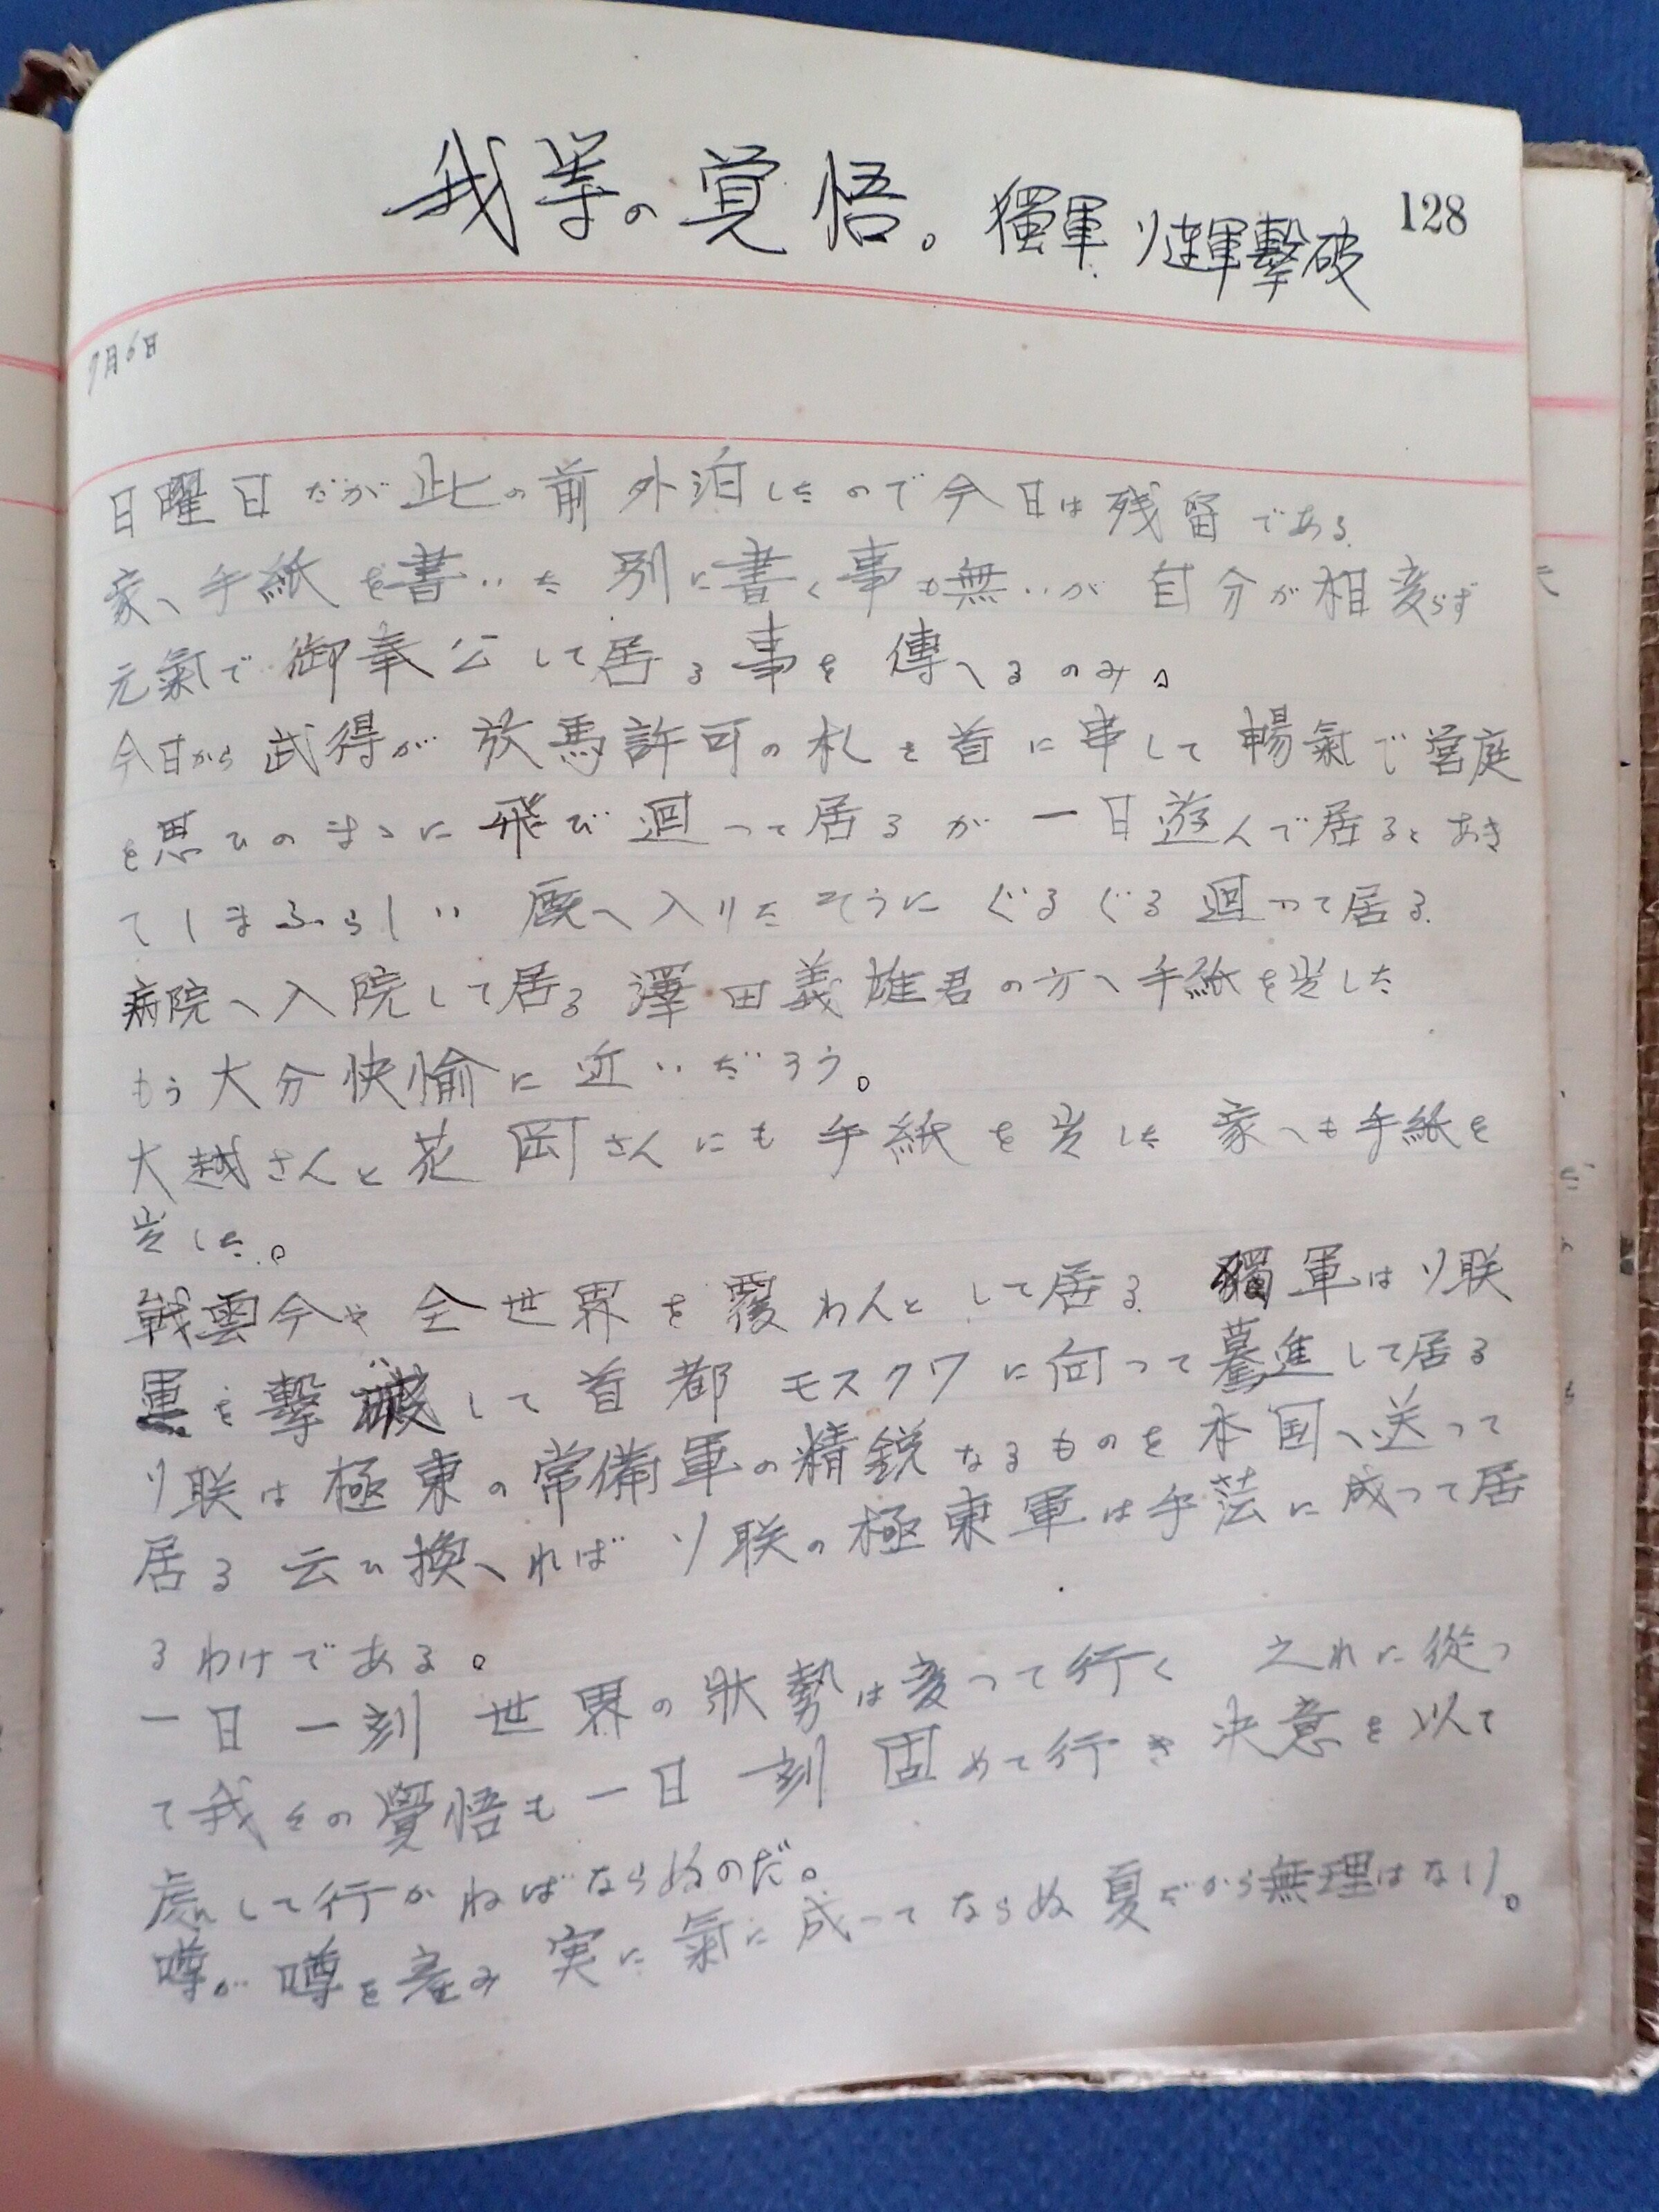 我等の覚悟。獨軍ソ連軍撃破
128
7月6日
日曜日だが此の前外泊したので今日は残留である.
家へ手紙を書いた 別に書く事も無いが 自分が相変らず
元氣で御奉公して居る事を傳へるのみ。
今日から武得が放馬許可の札を首に串して暢氣で営庭
を思ひのまゝに飛び廻って居るが一日遊んで居るとあき
てしまふらしい 厩へ入りたそうにぐるぐる廻って居る.
病院へ入院して居る澤田義雄君の方へ手紙を出した
もう大分快愉に近いだろう。
大越さんと花岡さんにも手紙を出した 家へも手紙を
出した。
戦雲今や全世界を覆わんとして居る 獨軍はソ联
軍を撃滅して首都モスクワに向って驀進して居る
ソ联は極東の常備軍の精鋭なるものを本国へ送って
居る 云ひ換へればソ联の極東軍は手法に成って居
るわけである。
一日一刻世界の状勢は変って行く 之れに從っ
て我々の覺悟も一日一刻固めて行き決意を以て
處して行かねばならぬのだ。
噂が噂を産み実に氣に成ってならぬ 夏だから無理はない。